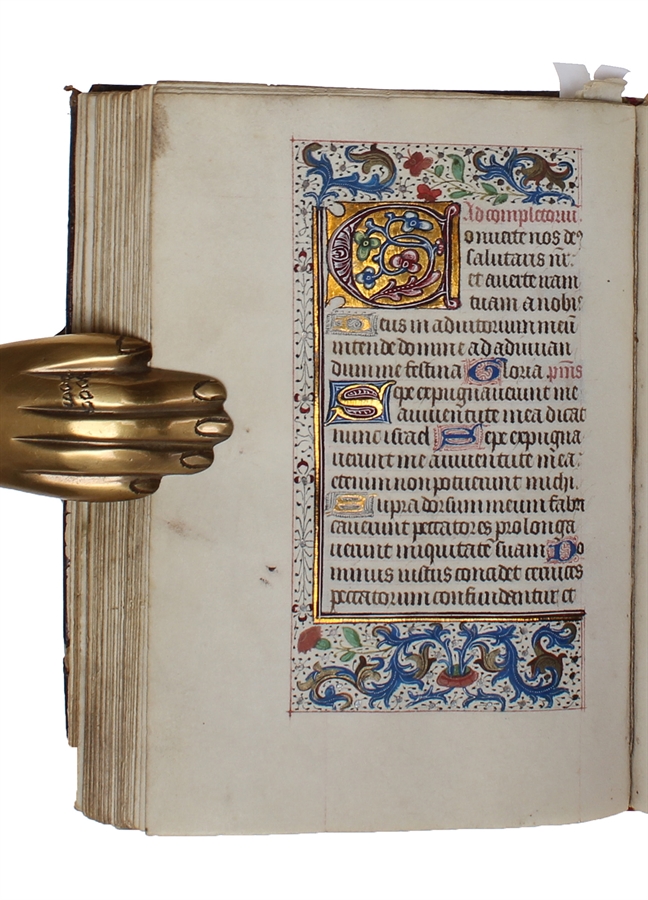 Ad completoriu.
Conuerte nos de9
salutaris nr.
et auerte iram
tuam a nobis
Deus in adiutorium meū
intende domine ad adiuuan
dum me festina Gloria
Sepe expugnauerunt me
a iuuentute mea dicat
nunc israel Sepe expugna
uerunt me a iuuentute mea:
etenim non potuerunt michi.
Supra dorsum meum fabri
cauerunt peccatores prolonga
uerunt iniquitatē suam Do
minus iustus concidet ceruices
peccatorum confundantur et